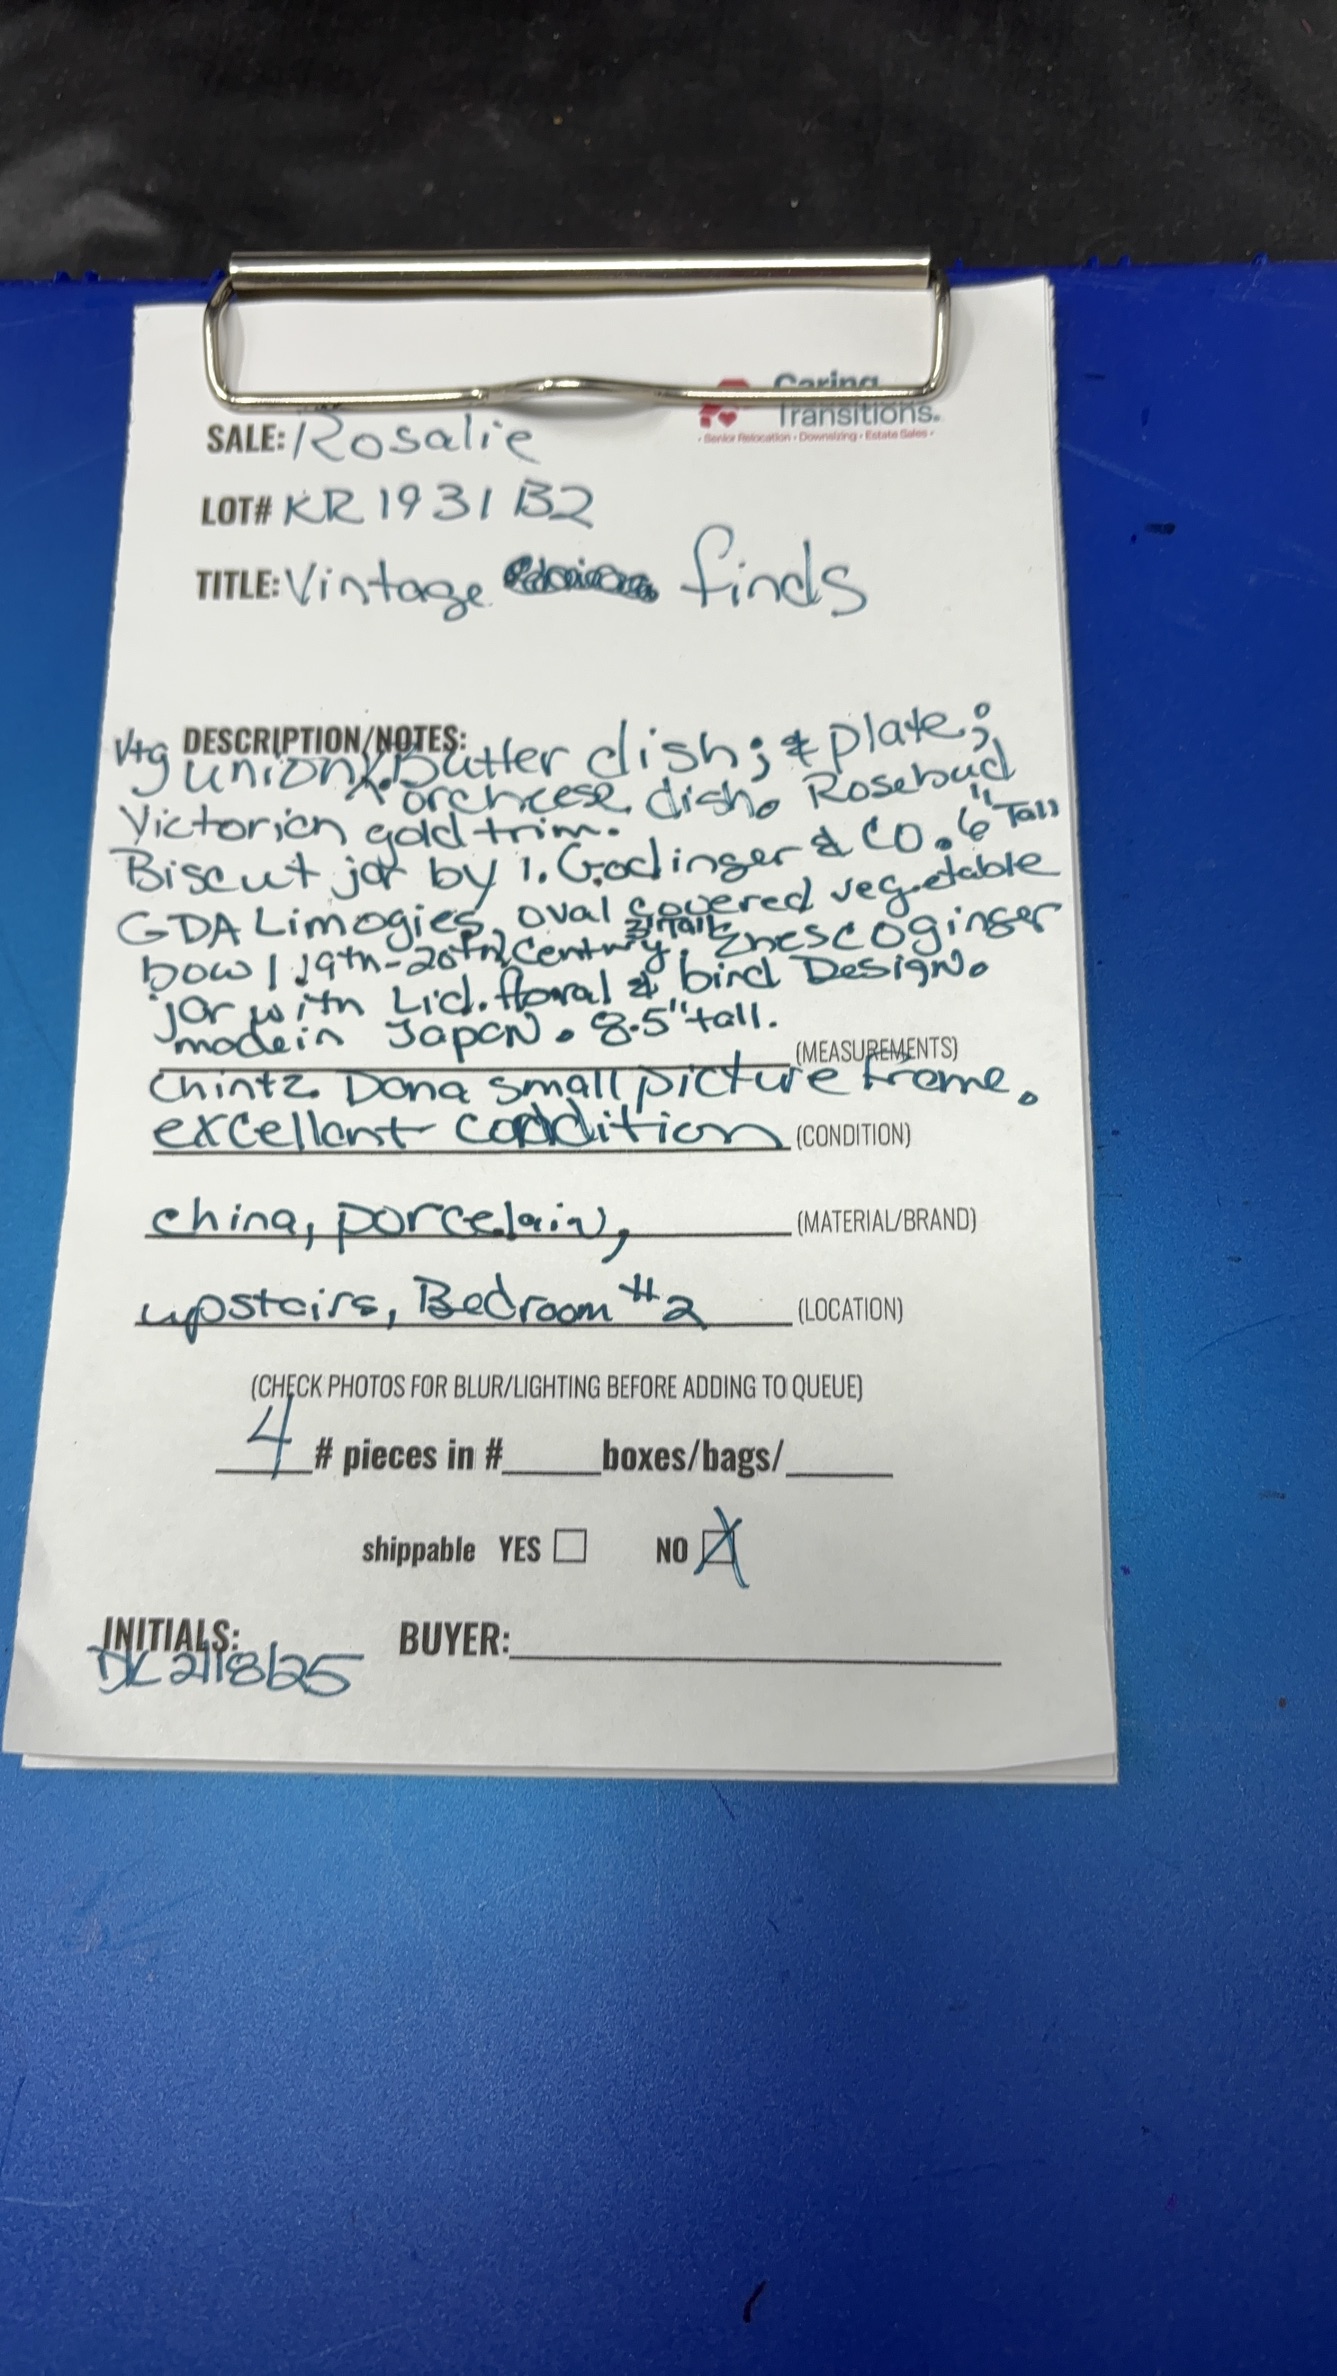 Caring
Transitions.
• Senior Relocation • Downsizing • Estate Sales •
SALE: Rosalie
LOT# KR1931B2
TITLE: Vintage finds
DESCRIPTION/NOTES:
Vtg union Butter dish; & plate;
or cheese dish. Rosebud
Victorian gold trim.
Biscut jar by 1. Godinger & CO. 6" Tall
GDA Limogies, oval covered vegetable
bowl 19th-20th Century. Enesco ginger
jar with Lid. floral & bird Design.
made in Japan. 8.5" tall.
(MEASUREMENTS)
Chintz. Dona small picture frame.
excellant condition (CONDITION)
china, porcelain, (MATERIAL/BRAND)
upstairs, Bedroom #2 (LOCATION)
(CHECK PHOTOS FOR BLUR/LIGHTING BEFORE ADDING TO QUEUE)
4 # pieces in # boxes/bags/
shippable YES NO X
INITIALS: BUYER:
DK 2/18/25